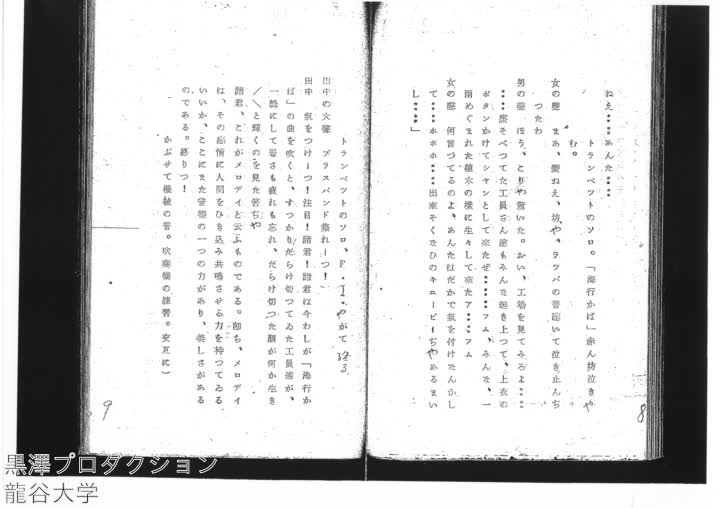 ねえ‥‥あんた‥‥
トランペットのソロ。「海行かば」赤ん坊泣きや
む。
女の聲 まあ、變ねえ、坊や、ラッパの音聞いて泣き止んぢ
やつたわ
男の聲 ほう、こりや驚いた。おい、工場を見てみろよ‥‥
‥‥寢そべつてた工員さん達もみんな起き上つて、上衣の
ボタンかけてシャンとして來たぜ‥‥‥フム、みんな、一
雨めぐまれた植木の樣に生々して來たア‥‥フム
女の聲 何言つてるのよ、あんたはだかで氣を付けたんかし
て‥‥ホホホ‥‥出來そくなひのキューピーぢやあるまい
し‥‥」
8
トランペットのソロ、F・I・やがて
田中の大聲 ブラスバンド集れーつ！
田中 氣をつけーつ！注目！諸君！諸君は今わしが「海行か
ば」の曲を吹くと、すつかりだらけ切つてゐた工員達が、
一齊にして暑さも疲れも忘れ、だらけ切つた顏が何か生き
／＼と輝くのを見た筈ぢや
諸君、これがメロデイと云ふものである。卽ち、メロデイ
は、その感情に人間をひき込み共鳴させる力を持つてゐる
いいか、ここにまた音樂の一つの力があり、美しさがある
のである。終りつ！
かぶせて機械の音。吹奏樂の練習。交互に）
9
黒澤プロダクション
龍谷大学